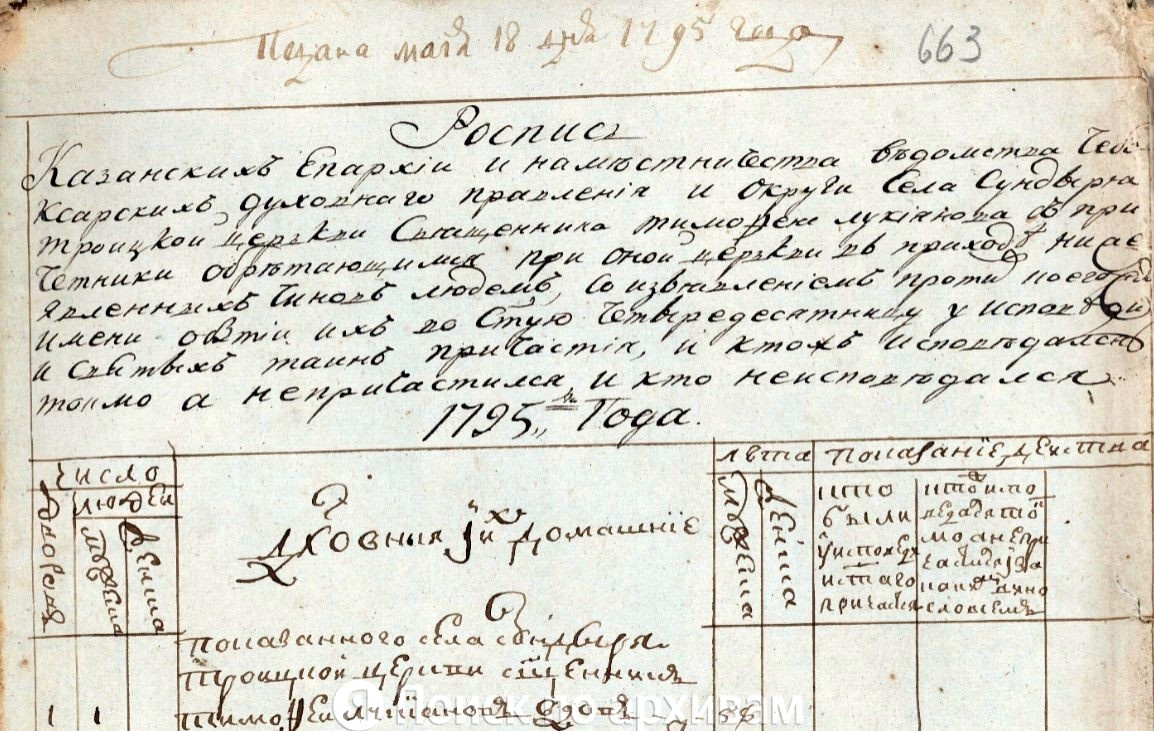 Подана маия 18 дня 1795 года
663
Роспись
Казанскихъ Епархіи и намѣстничества вѣдомства Чебо
ксарскихъ духовнаго правленія и округи Села Сундыря
троицкой церькви Священника тимофея лукіянова съ при
четники обрѣтающимся при оной церькви въ приходѣ ниже
явленныхъ чиновъ людемъ, со изъявленіемъ противъ коегождо
имени о бытіи ихъ во Стую Четыредесятницу у исповѣди
и святыхъ таинъ причастіи, и ктожъ исповѣдался
токмо а непричастился, и кто неисповѣдался
1795 Года.
число
людей
дворовъ
мужеска
женска
Дховния ихъ домашніе
лѣта
мужеска
женска
показаніе действа
кто
были
у исповед
и стаго
причастия
показанного села Сундыря
троицкой церкви сщенник
1 1 тимофей лукияновъ вдовъ 56
Поиск по архивам